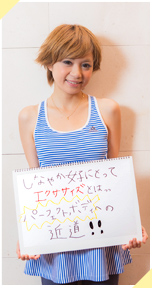 しなやか女子にとって
エクササイズとは…
パーフェクトボディへの
近道!!